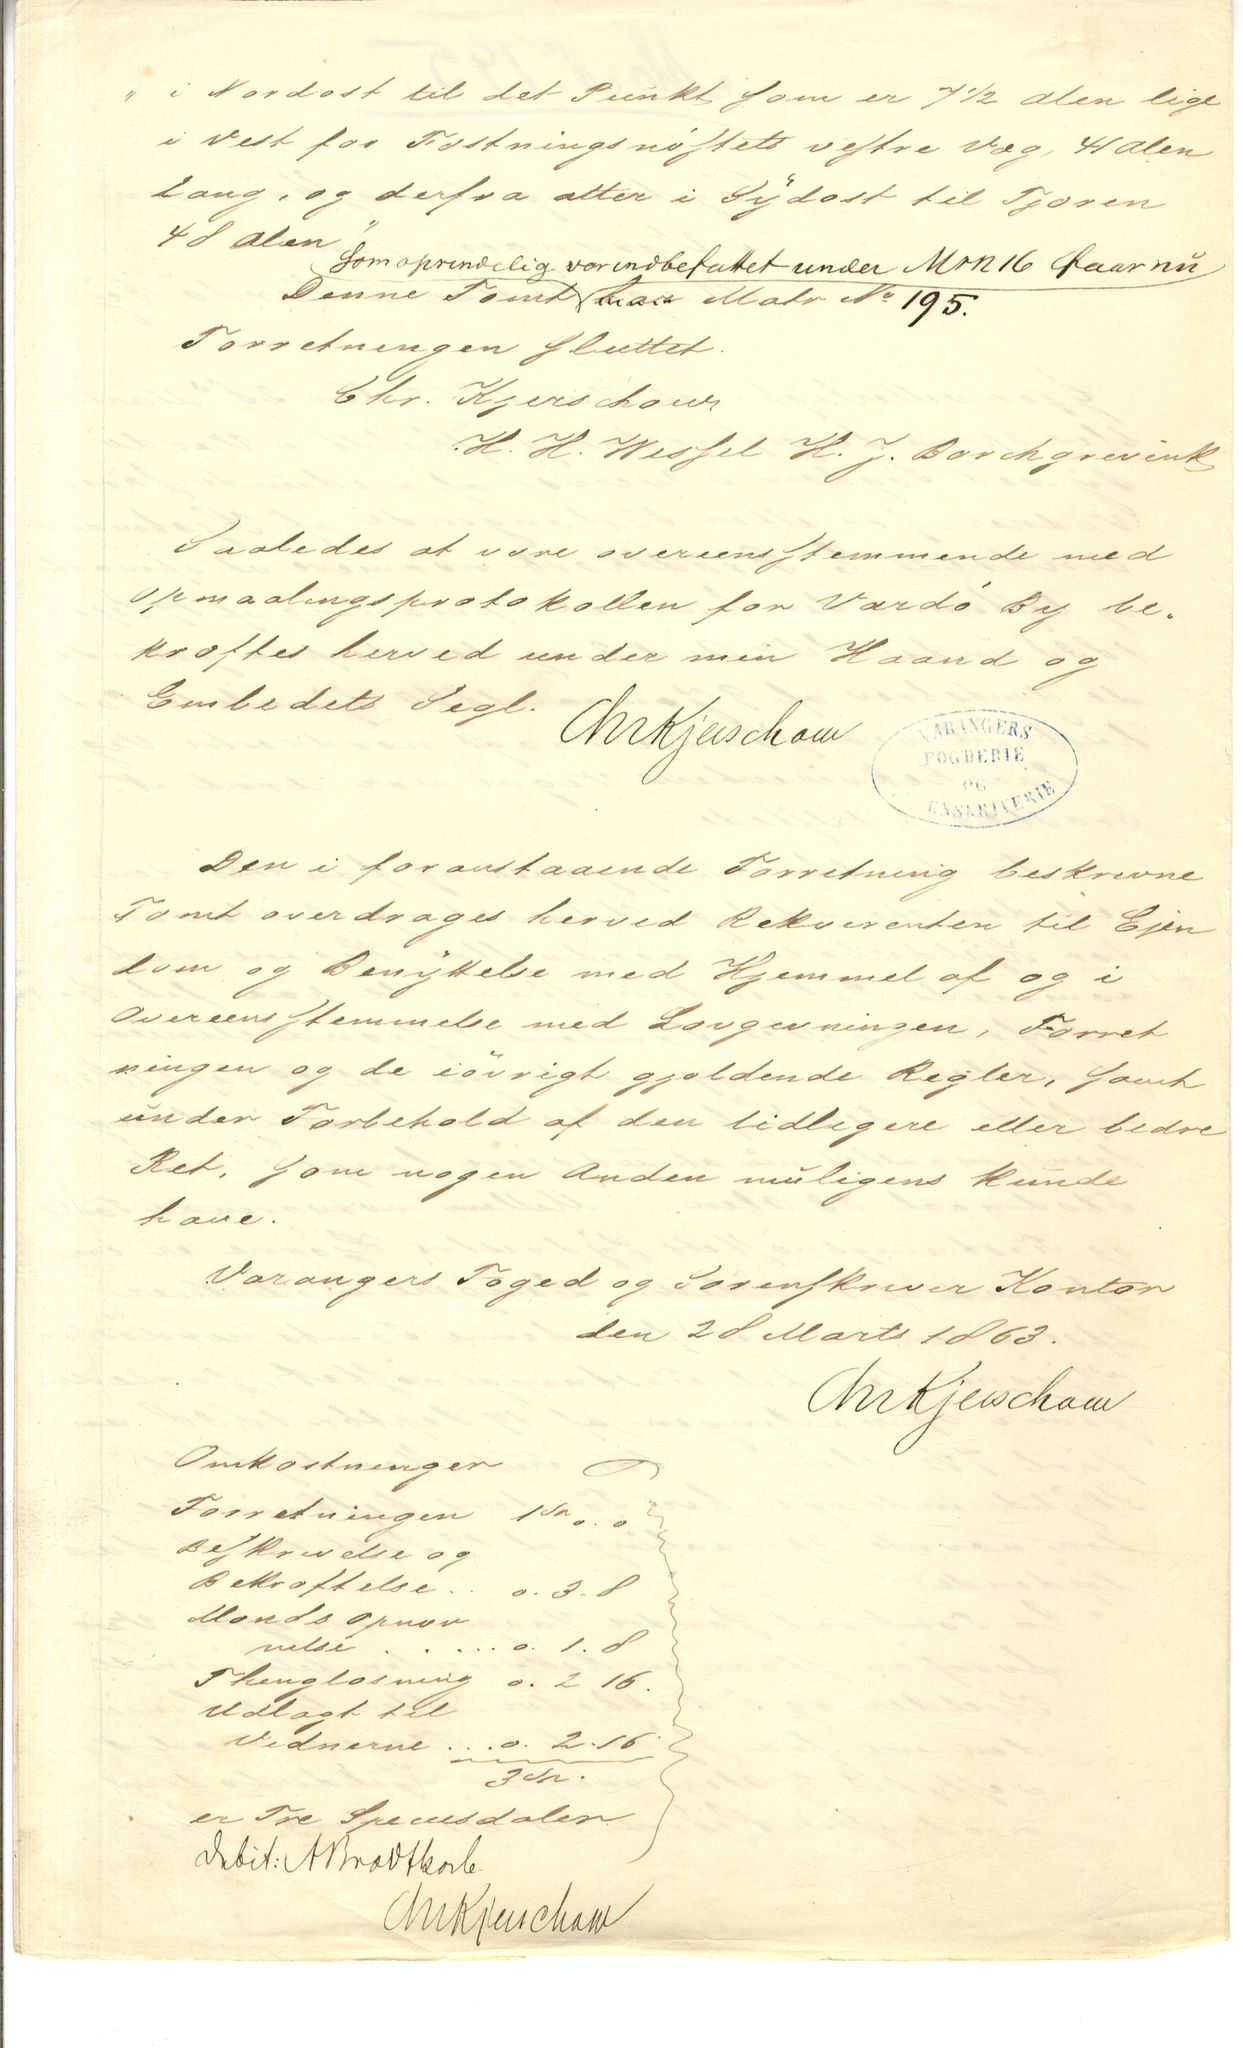 " i Nordost til det Punkt som er 7 1/2 Alen lige
i Vest for Fæstningsnøstets vestre Væg, 41 Alen
lang, og derfra atter i Sydost til Fjæren
48 Alen"
som oprindelig var indbefattet under M N 16 faar nu
Denne Tomt har Matr No 195.
Forretningen sluttet.
Chr. Kjerschow
H. H. Wessel H. J. Borchgrevink
Saaledes at være overeensstemmende med
Opmaalingsprotokollen for Vardø By be-
kræftes herved under min Haand og
Embedets Segl.
Chr Kjerschow
VARANGERS
FOGDERIE
OG
ENSKRIVERIE
Den i foranstaaende Forretning beskrevne
Tomt overdrages herved Rekvirenten til Ejen
dom og Benyttelse med Hjemmel af og i
Overeensstemmelse med Lovgivningen, Forret
ningen og de iøvrigt gjældende Regler, samt
under Forbehold af den tidligere eller bedre
Ret, som nogen Anden muligens kunde
have.
Varangers Foged og Sorenskriver Kontor
den 28 Marts 1863.
Chr Kjerschow
Omkostninger
Forretningen 1 Sp o. o
Beskrivelse og
Bekræftelse .. o. 3. 8
Mands Opnæv
nelse . . ... o. 1. 8
Thinglæsning o. 2 16.
Udlagt til
Vidnerne ... o. 2. 16
3 Sp.
er Tre Speciesdaler
Debit: A Brodtkorb
Chr Kjerschow